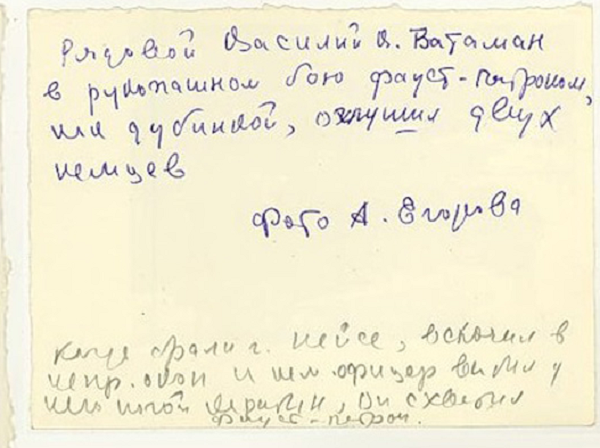 Рядовой Василий Я. Ватаман
в рукопашном бою фауст-патроном,
как дубинкой, оглушил двух
немцев
Фото А. Егорова
когда брали г. Нейсе, вскочил в
непр. окоп и нем. офицер выбил у
него ногой карабин, он схватил
фауст-патрон.